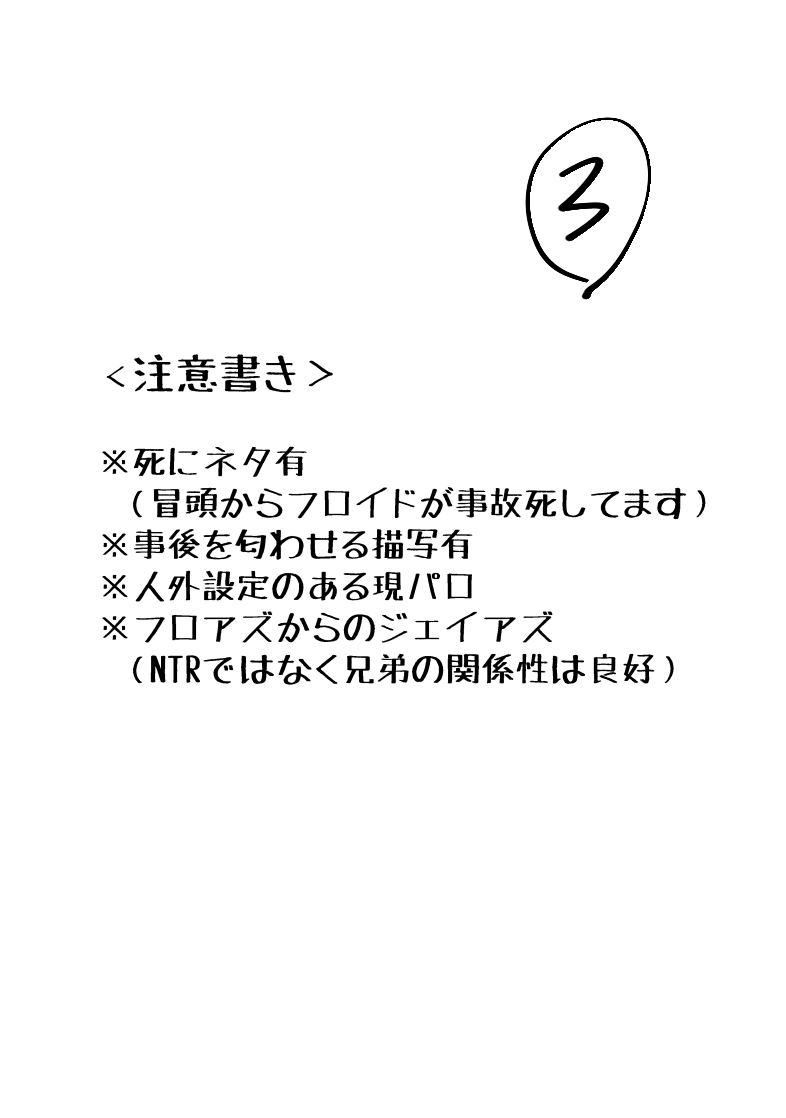 3
<注意書き>
※死にネタ有
(冒頭からフロイドが事故死してます)
※事後を匂わせる描写有
※人外設定のある現パロ
※フロアズからのジェイアズ
(NTRではなく兄弟の関係性は良好)